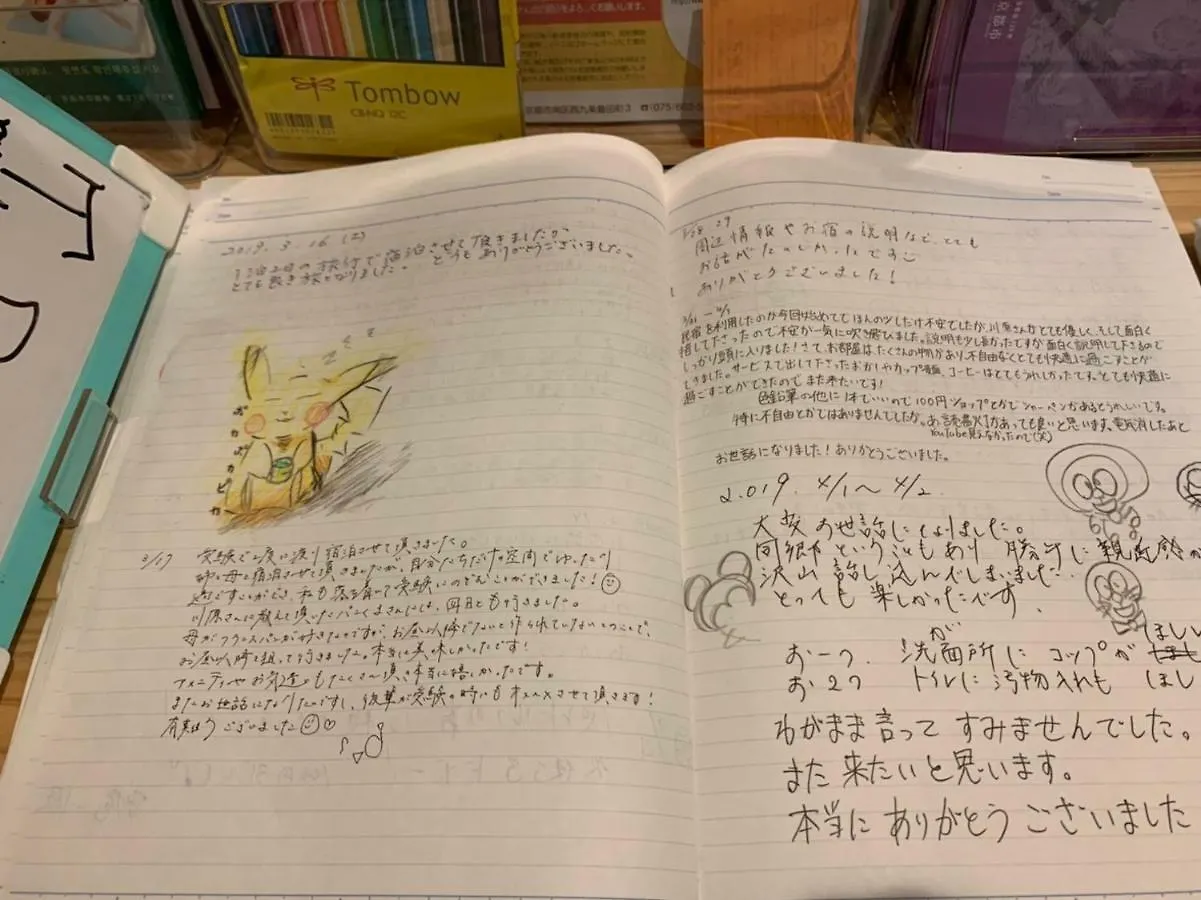 Tombow
CB-NQ 12C
京都市南区西九条豊田町3
(075)662-5
2019. 3. 16 (土)
1泊2日の旅行で宿泊させて頂きましたが
とても良き旅となりました。どうもありがとうございました。
ピカピカ
3/17 受験で2度に渡り宿泊させて頂きました。
姉と母と宿泊させて頂きましたが、自分たちだけの空間でゆったり
過ごすことができ、私も落ち着いて受験にのぞむことができました!
川原さんに教えて頂いたパンくまさんには、両日とも行きました。
母がフランスパンが好きなのですが、お昼以降でないと作られていないとのことで、
お昼以降を狙って行きました。本当に美味しかったです!
アメニティやお気遣いもたくさん頂き本当に嬉しかったです。
またお世話になりたいですし、後輩が受験の時にもオススメさせて頂きます!
有難うございました
3/28 29
周辺情報やお宿の説明など、とても
お話がたのしかったです
ありがとうございました!
3/31 - 4/1
民宿を利用したのが今回始めてでほんの少しだけ不安でしたが、川原さんがとても優しく、そして面白く
接して下さったので不安が一気に吹き飛びました。説明も少し長かったですが面白く説明して下さるので
しっかり頭に入りました!さて、お部屋は、たくさんの物があり、不自由なくとても快適に過ごすことが
できました。サービスで出して下さったおかしやカップ麺、コーヒーはとてもうれしかったです。とても快適に
過ごすことができたのでまた来たいです!
色鉛筆の他に1本でいいので100円ショップとかでシャーペンがあるとうれしいです。
特に不自由とかではありませんでしたが、お読書灯があっても良いと思います。電気消したあと
YouTube見えなかったので(笑)
お世話になりました!ありがとうございました。
2019. 4/1〜4/2.
大変お世話になりました。
同郷ということもあり 勝手に親近感が
沢山話し込んでしまいました.
とっても楽しかったです.
お一つ. 洗面所にコップがほしい
お2つ トイレに汚物入れもほし
わがまま言ってすみませんでした。
また来たいと思います。
本当にありがとうございました